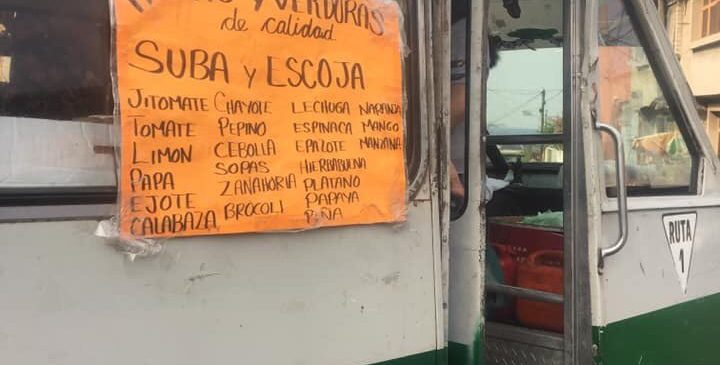 Y VERDURAS
de calidad
SUBA y ESCOJA
JITOMATE CHAYOTE LECHUGA NARANJA
TOMATE PEPINO ESPINACA MANGO
LIMON CEBOLLA EPAZOTE MANZANA
PAPA SOPAS HIERBABUENA
EJOTE ZANAHORIA PLATANO
CALABAZA BRÓCOLI PAPAYA
PIÑA
RUTA
1